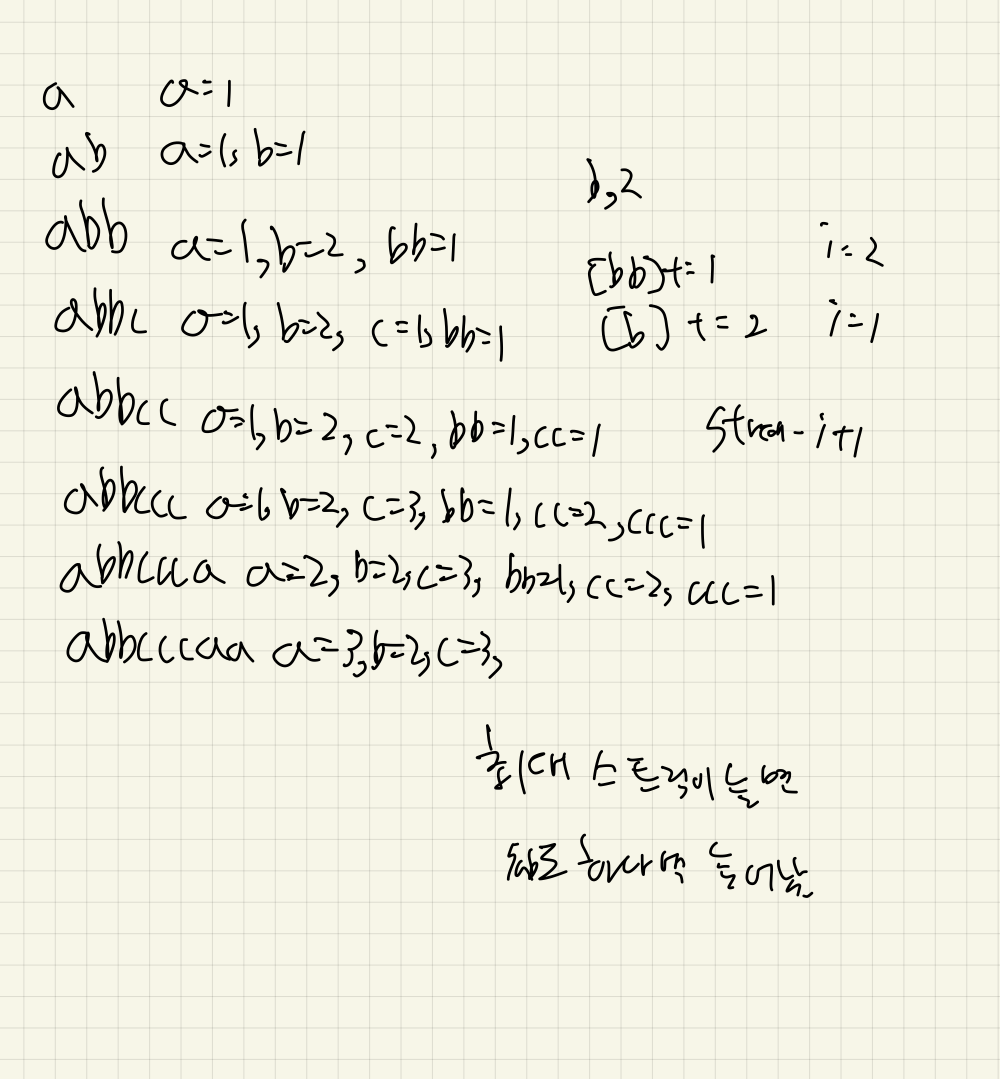 a a=1
ab a=1, b=1
b,2
abb a=1, b=2, bb=1
i=2
[bb]+=1
abbc a=1, b=2, c=1, bb=1
[b] += 2 i=1
abbcc a=1, b=2, c=2, bb=1, cc=1
-i+1
abbccc a=1, b=2, c=3, bb=1, cc=2, ccc=1
abbccca a=2, b=2, c=3, bb=1, cc=2, ccc=1
abbcccaa a=3, b=2, c=3,
최대 스트릭이 늘면
sub도 하나씩 늘어남